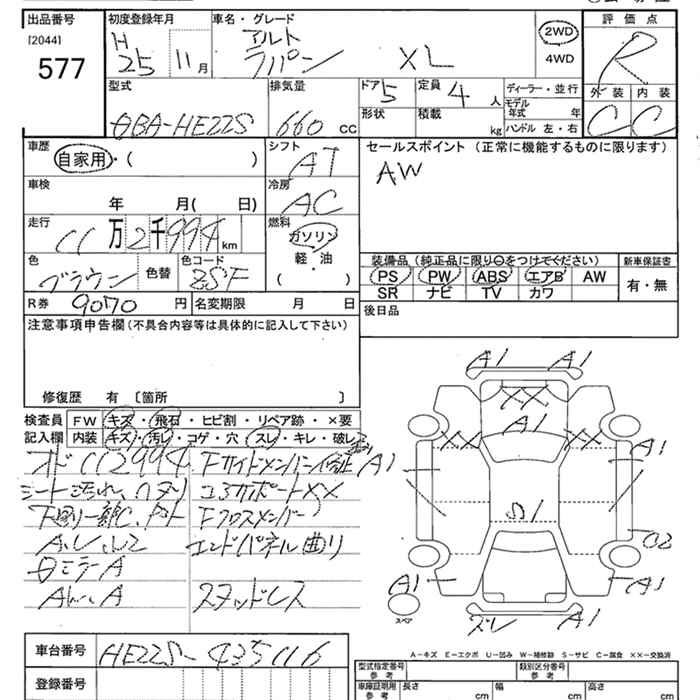 出品番号 初度登録年月 車名・グレード 評価点
[2044] H アルト 2WD R
577 25 11月 ラパン XL 4WD
外装 内装
型式 排気量 ドア 5 定員 4 人 ディーラー・並行 C C
モデル年式 年
DBA-HE22S 660 CC 形状 積載 kg ハンドル 左・右
車歴 シフト セールスポイント (正常に機能するものに限ります)
自家用・( ) AT AW
車検 冷房
年 月( 日) AC
走行 燃料
11万2千994km ガソリン
軽・油
装備品 (純正品に限り○をつけてください) 新車保証書
色 色替 色コード ( )
ブラウン ZSF PS PW ABS エアB AW 有・無
SR ナビ TV カワ
R券 9070 円 名変期限 月 日 後日品
注意事項申告欄 (不具合内容等は具体的に記入して下さい)
修復歴 有 〔箇所 〕
検査員 FW キズ・飛石・ヒビ割・リペア跡・×要
記入欄 内装 キズ・汚れ・コゲ・穴・スレ・キレ・破レ
オド112994 Fサイドメンバー修正
シート汚れ、ヘタリ コアサポートXX
下廻り一部C、サビ Fクロスメンバー
エンドパネル曲り
ミラーA
スタッドレス
A1 A1
XX
XX A1 XX
A1 A1
S1
A1 A1
スペア
スレ A1
A-キズ E-エクボ U-凹み W-補修跡 S-サビ C-腐食 XX-交換済
車台番号 HE22S-435116
登録番号
型式指定番号 参考 類別区分番号 参考
車庫証明用 参考 長さ cm 幅 cm 高さ cm